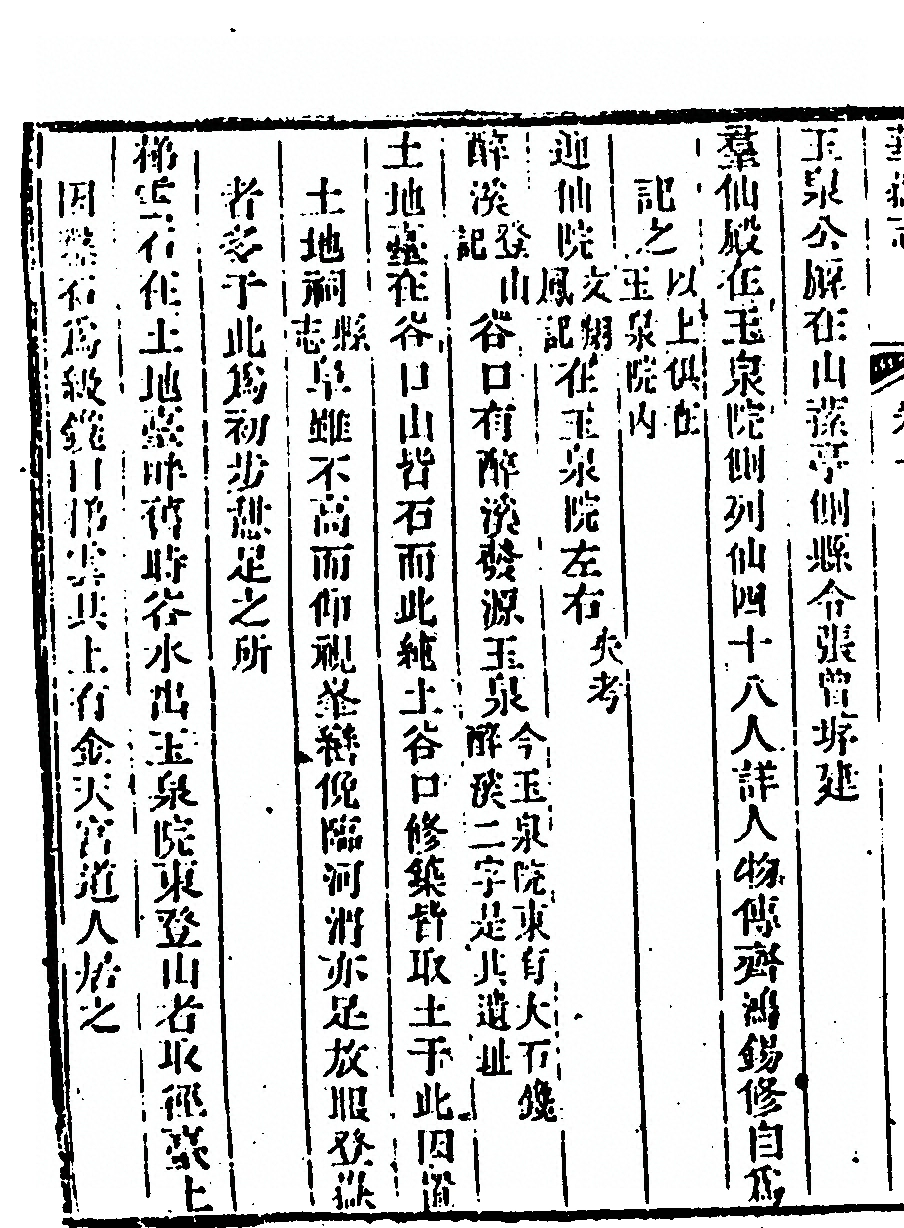 華嶽志 卷一
玉泉公廨在山蓀亭側縣令張曾垿建
羣仙殿在玉泉院側列仙四十八人詳人物傳齊鴻錫修自爲
記之以上俱在玉泉院內
迎仙院文翔鳳記在玉泉院左右失考
醉溪登山記谷口有醉溪發源玉泉今玉泉院東有大石鐫醉溪二字是其遺址
土地臺在谷口山皆石而此純土谷口修築皆取土于此因置
土地祠縣志阜雖不高而仰視峯巒俛臨河渭亦足放眼登嶽
者多于此爲初步憩足之所
梯雲石在土地臺畔舊時谷水出玉泉院東登山者取徑臺上
因鑿石爲級鐫曰梯雲其上有金天宮道人居之